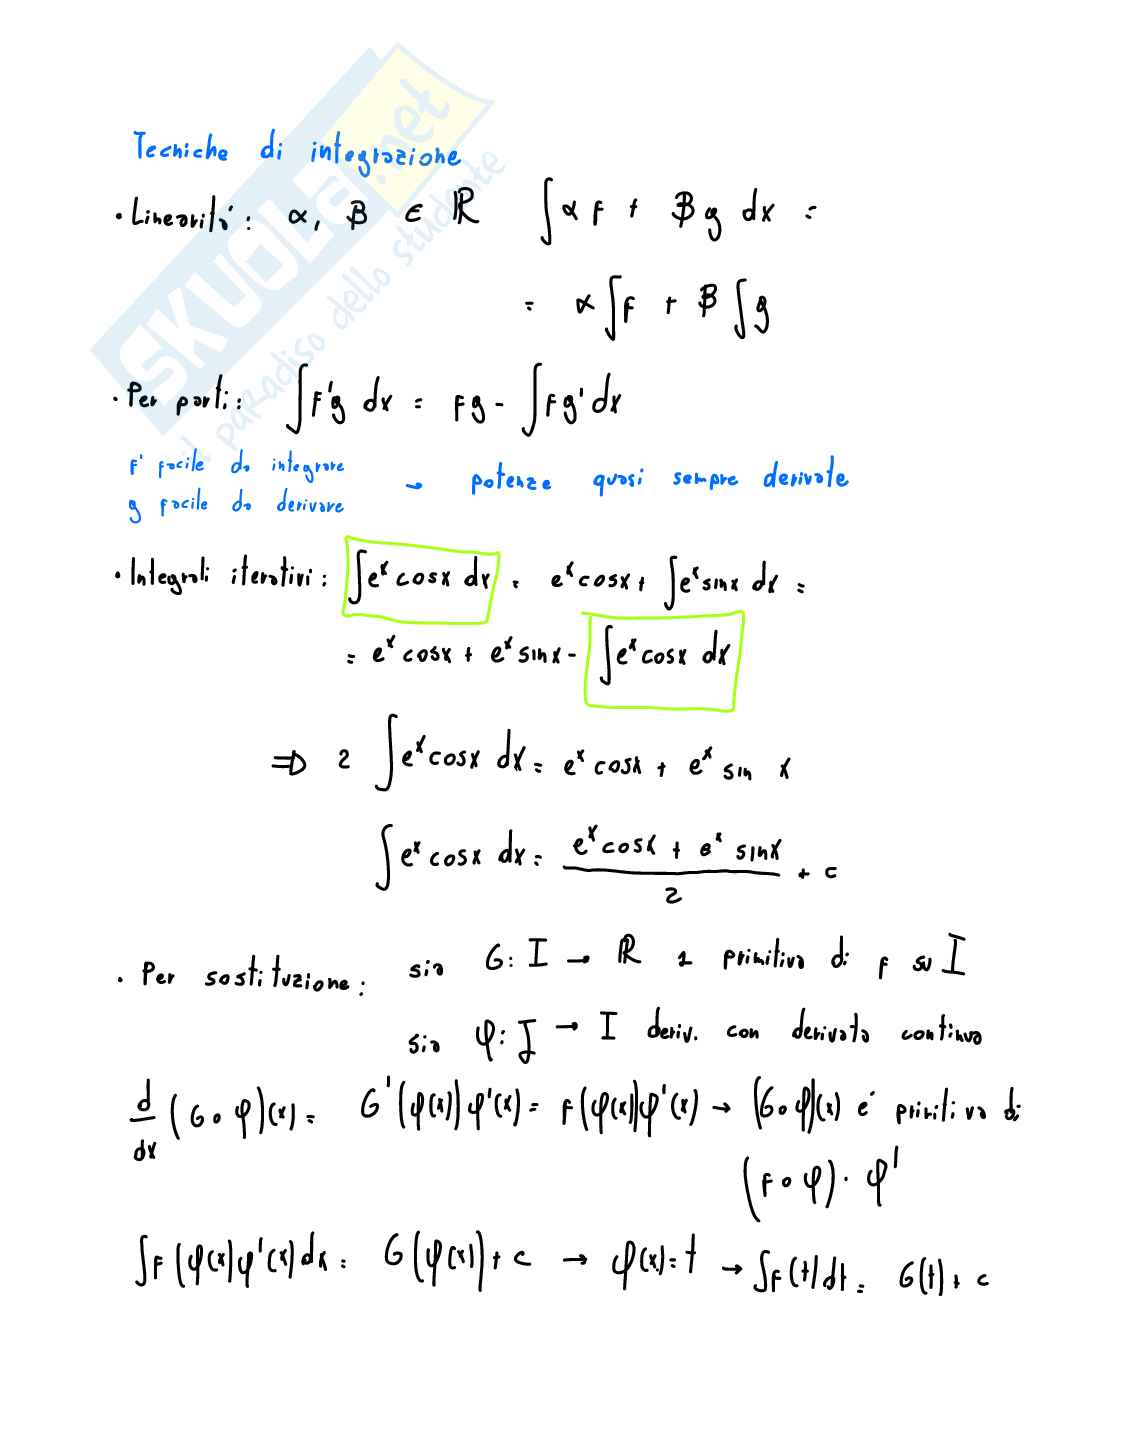 SKUOLA.net
il paradiso dello studente
Tecniche di integrazione
• Linearità: α, β ∈ ℝ ∫αf + βg dx =
= α∫f + β∫g
• Per parti: ∫f'g dx = fg - ∫fg' dx
f' facile da integrare
g facile da derivare → potenze quasi sempre derivate
• Integrali iterativi: ∫eˣ cosx dx = eˣ cosx + ∫eˣ sinx dx =
= eˣ cosx + eˣ sinx - ∫eˣ cosx dx
⇒ 2 ∫eˣ cosx dx = eˣ cosx + eˣ sin x
∫eˣ cosx dx = (eˣ cosx + eˣ sinx)/2 + c
• Per sostituzione: sia G: I → ℝ 1 primitiva di f su I
sia φ: J → I deriv. con derivata continua
d/dx (G∘φ)(x) = G'(φ(x))φ'(x) = f(φ(x))φ'(x) → (G∘φ)(x) e' primitiva di
(f∘φ)·φ'
∫f(φ(x)φ'(x)dx = G(φ(x))+c → φ(x)=t → ∫f(t)dt = G(t)+c